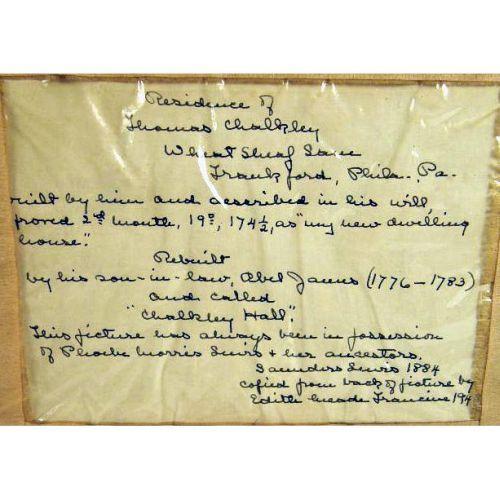 Residence of
Thomas Chalkley
Wheat Sheaf Lane
Frankford, Phila., Pa.
built by him and described in his will,
proved 2nd month, 19th, 174½, as "my new dwelling
house."
Rebuilt
by his son-in-law, Abel James (1776-1783)
and called
"Chalkley Hall".
This picture has always been in possession
of Phoebe Morris Lewis & her ancestors.
Saunders Lewis 1884
copied from back of picture by
Edith Meade Francine 194